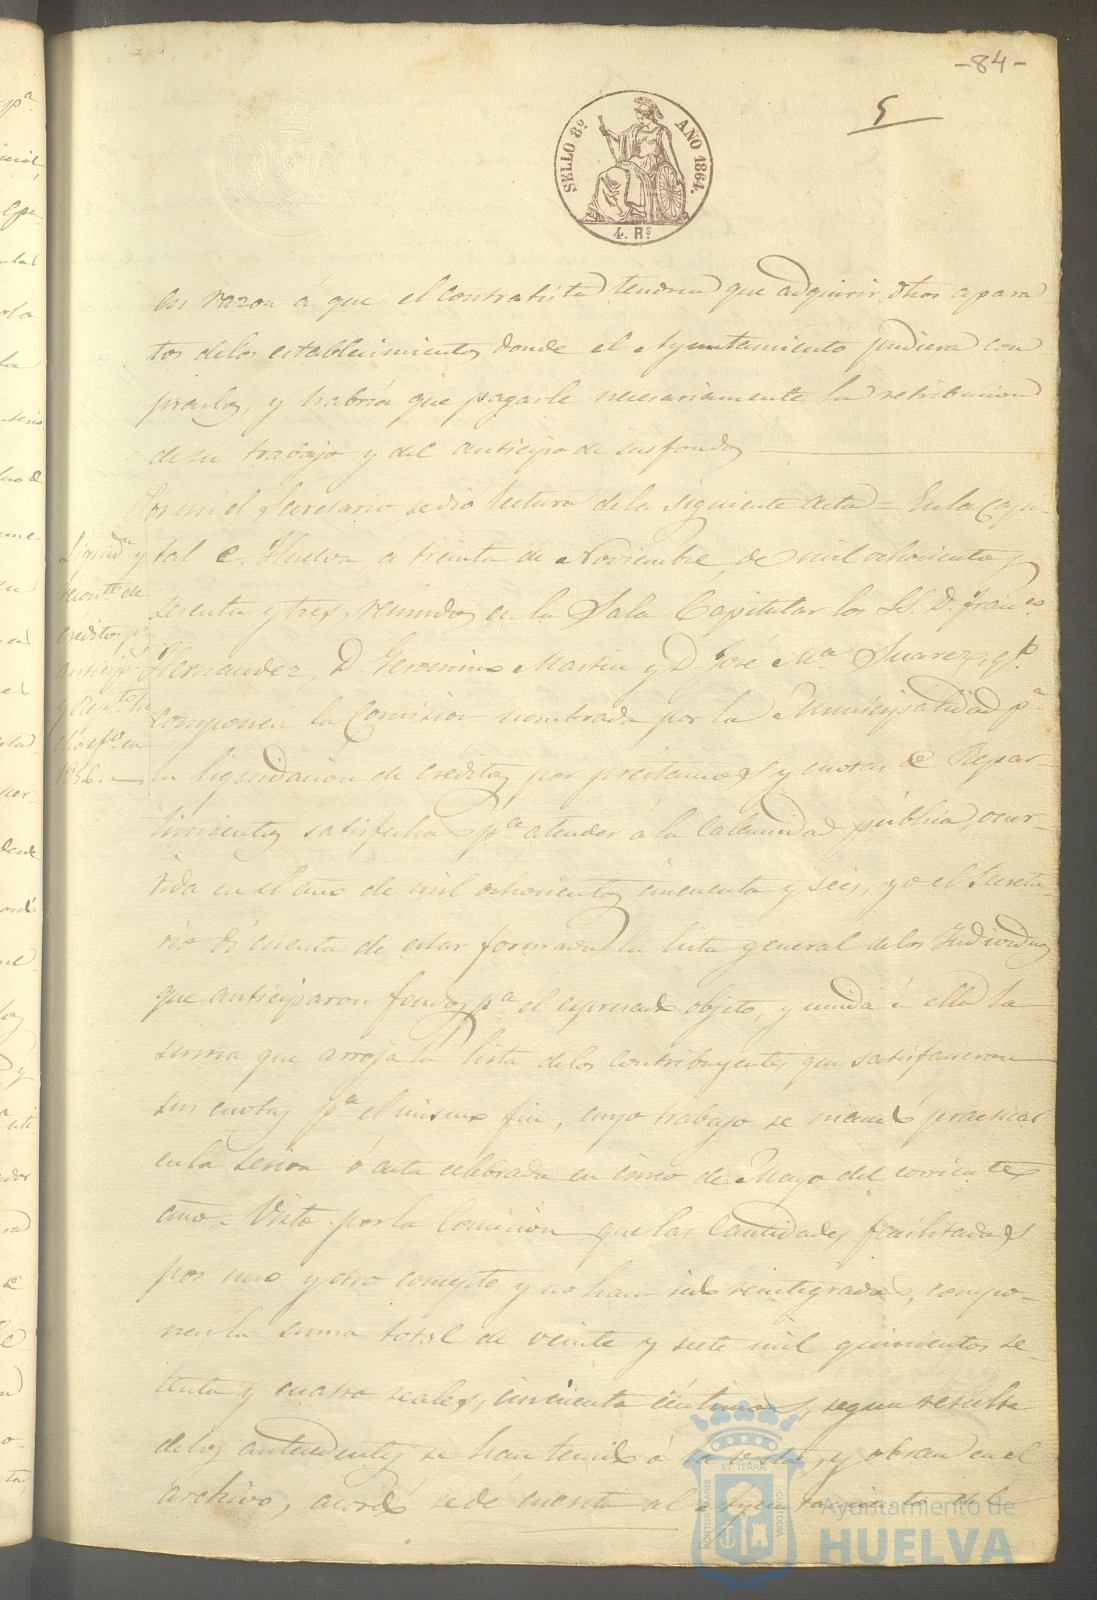 -84-
5
SELLO 8º AÑO 1864.
4. Rs
en razon á que el contratista tendria que adquirir dhos apara
tos de los establecimientos donde el Ayuntamiento pudiera com
prarlos, y habria que pagarle necesariamente la retribucion
de su trabajo y del anticipo de sus fondos
Por mi el Secretario se dio lectura de la siguiente acta = En la Capi-
tal de Huelva á treinta de Noviembre de mil ochocientos
sesenta y tres, reunidos en la Sala Capitular los SS. D. Franco
Hernandez, D. Geronimo Martin y D. José Ma Suarez, q.e
componen la Comision nombrada por la Municipalidad pa
la liquidacion de créditos por préstamos y cuotas de Repar-
timientos satisfechas pa atender á la Calamidad pública ocur-
rida en el año de mil ochocientos cincuenta y seis, yo el Secreta-
rio dí cuenta de estar formada la lista general de los Individuos
que anticiparon fondos pa el espresado objeto, y unida á ella la
suma que arroja la lista de los contribuyentes que satisfacieron
sus cuotas pa el mismo fin, cuyo trabajo se mandó practicar
en la sesion ó acta celebrada en cinco de Mayo del corriente
año. Visto por la Comision que las Cantidades facilitadas
por uno y otro concepto y no han sido reintegradas, compo-
nen la suma total de veinte y siete mil quinientos se-
tenta y cuatro reales, cincuenta céntimos, segun resulta
de los antecedentes se han tenido á la vista, y obran en el
archivo, acordó se de cuenta al Ayuntamiento de la
Liquidn y
reconto de
creditos pr
anticips
y Reptos
en
1856.
PORTUS MARIS ET TERRÆ CUSTODIA
Ayuntamiento de
HUELVA